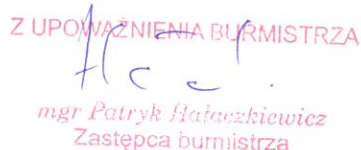 Z UPOWAŻNIENIA BURMISTRZA
mgr Patryk Hałaczkiewicz
Zastępca burmistrza